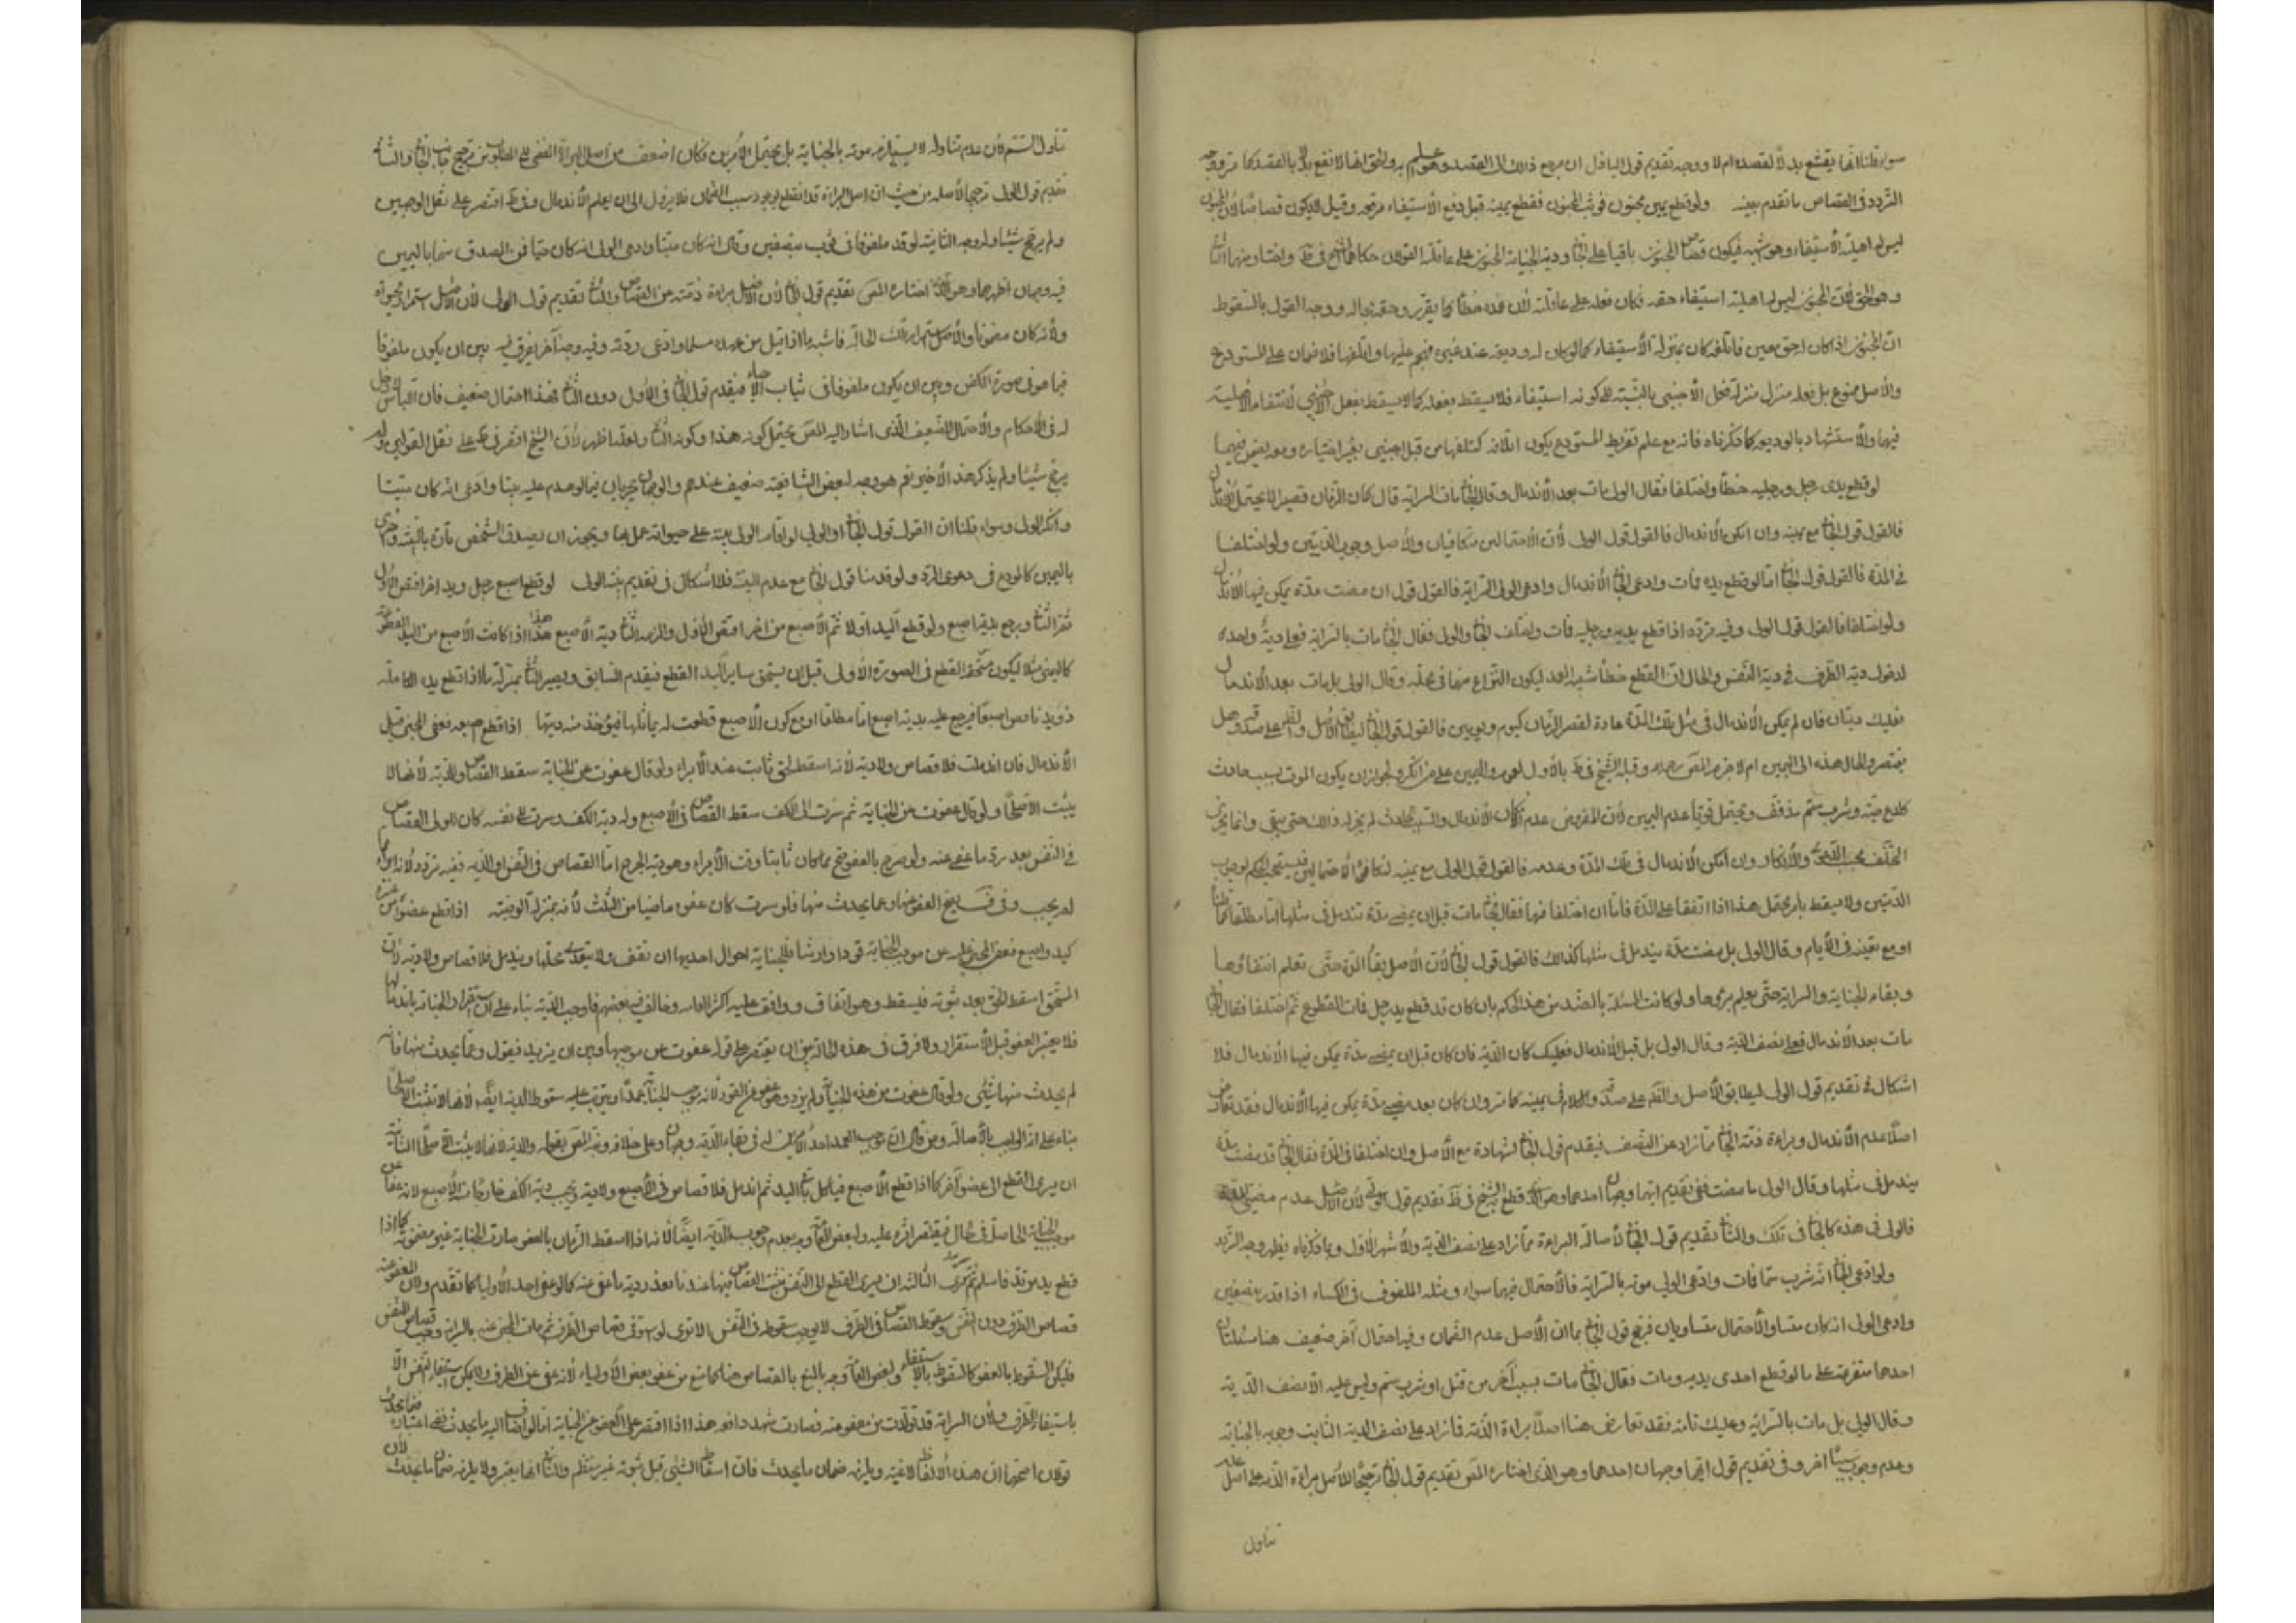 سواء قلنا انها يقتص بدلا لقصده ام لا ووجه تقديم قول الباذل ان مرجع ذلك الى القصد وهو اعلم به
التردد في القصاص ما تقدم بعينه ولو قطع يمين مجنون فوثب المجنون فقطع يمينه قبل دفع الأستيفاء موقعه وقيل لا يكون قصاصا لان المجنون
ليس له اهلية الأستيفاء وهو اشبه فيكون قصاص المجنون باقيا على الجاني ودية الجناية المجنون على عاقلته القولان حكاهما الشيخ في ط
وهو الحق لأن المجنون ليس له اهلية استيفاء حقه فكان فعله على عاقلته لان عمده خطأ كما يقرر وحقه بحاله ووجه القول بالسقوط
ان المجنون اذا كان له حق معين فاتلفه كان بمنزلة الأستيفاء كما لو كان له وديعة عند غيره فهجم عليها واتلفها فلا ضمان على المستودع
والأصل ممنوع بل فعله منزل منزلة فعل الأجنبي بالنسبة الى كونه استيفاء فلا يسقط بفعله كما لا يسقط بفعل الأجنبي لأنتفاء الأهلية
فيها والأستشهاد بالوديعة كما ذكرناه فانه مع علم تفريط المستودع يكون اتلافه كتلفها من قبل اجنبي بغير اختياره
لو قطع يدى رجل ورجليه خطأ واختلفا فقال الولي مات بعد الأندمال وقال الجاني مات بالسراية قال كان الزمان قصيرا لا يحتمل الأندمال
فالقول قول الجاني مع يمينه وان امكن الأندمال فالقول قول الولي لأن الأحتمالين متكافيان والأصل وجوب الديتين ولو اختلفا
في المدة فالقول قول الجاني اما لو قطع يده فمات وادعى الجاني الأندمال وادعى الولي السراية فالقول قوله ان مضت مدة يمكن فيها الأندمال
ولو اختلفا فالقول قول الولي وفيه تردد اذا قطع يديه ورجليه فمات واختلف الجاني والولي فقال الجاني مات بالسراية فعلي دية واحدة
لدخول دية الطرف في دية النفس والحال ان القطع خطأ شبيه العمد ليكون النزاع منهما في محله وقال الولي بل مات بعد الأندمال
فعليك ديتان فان لم يمكن الأندمال في مثل تلك المدة عادة لقصر الزمان كيوم ويومين فالقول قول الجاني
يقتصر والحال هذه الى اليمين ام لا جزم المص رحمه وقبله الشيخ في ط بالأول لعموم واليمين على من انكر ولجواز ان يكون الموت بسبب حادث
كلدغ حية وشرب سم مذفف ويحتمل قويا عدم اليمين لأن المفروض عدم امكان الأندمال
وان امكن الأندمال في تلك المدة وعدمه فالقول قول الولي مع يمينه لتكافؤ الأحتمالين
الديتين ولا يسقط بامر محتمل هذا اذا اتفقا على المدة فاما ان اختلفا فيها فقال الجاني مات قبل ان يمضي مدة تندمل في مثلها اما مطلقا
او مع تعينه في الأيام وقال الولي بل مضت مدة يندمل في مثلها كذلك فالقول قول الجاني لأن الأصل بقاء المدة حتى تعلم انتفاؤها
وبقاء الجناية والسراية حتى يعلم برؤها ولو كانت المسئلة بالضد من هذا الحكم بان كان قد قطع يد رجل فمات المقطوع ثم اختلفا فقال الجاني
مات بعد الأندمال فعلي نصف الدية وقال الولي بل قبل الأندمال فعليك كمال الدية فان كان قبل ان يمضي مدة يمكن فيها الأندمال فلا
اشكال في تقديم قول الولي ليطابق الأصل والظاهر على صدقه والكلام في يمينه كما مر وان كان بعد مضي مدة يمكن فيها الأندمال فقد تعارض
اصلا عدم الأندمال وبراءة ذمة الجاني مما زاد عن النصف فيقدم قول الجاني لشهادة مع الأصل وان اختلفا في المدة فقال الجاني قد مضت مدة
يندمل في مثلها وقال الولي ما مضت ففي تقديم ايهما وجهان احدهما
فالولي في هذه كالجاني في تلك والثاني تقديم قول الجاني لأصالة البراءة مما زاد على نصف الدية والأشهر الأول وبما ذكرناه يظهر وجه التردد
ولو ادعى الجاني انه شرب سما فمات وادعى الولي موته بالسراية فالأحتمال فيهما سواء ومثله الملفوف في الكساء اذا قده بنصفين
وادعى الولي انه كان حيا والأحتمال متساويان فيرجح قول الجاني بما ان الأصل عدم الضمان وفيه احتمال آخر ضعيف هنا مسئلتان
احدهما متفرعة على ما لو قطع احدى يديه ومات فقال الجاني مات بسبب آخر من قتل او شرب سم وليس عليه الا نصف الدية
وقال الولي بل مات بالسراية وعليك تامة فقد تعارض هنا اصلا براءة الذمة فما زاد على نصف الدية الثابت وجوبه بالجناية
وعدم وجود سبب اخر وفي تقديم قول ايهما وجهان احدهما وهو الذي اختاره المص تقديم قول الجاني ترجيحا لأصل براءة الذمة على اصل عدم
تناول
تناول السم لان عدم تناوله لا يستلزم موته بالجناية بل يحتمل الأمرين فكان اضعف من اصل البراءة
تقديم قول الولي ترجيحا لأصله من حيث ان اصل البراءة قد انقطع بوجود سبب الضمان فلا يزول الى ان يعلم الأندمال وفي ط اقتصر على نقل الوجهين
ولم يرجح شيئا الثانية لو قد ملفوفا في ثوب بنصفين وقال انه كان ميتا وادعى الولي انه كان حيا فمن المصدق منهما باليمين
فيه وجهان اظهرهما وهو الذي اختاره المص تقديم قول الجاني لأن الأصل براءة ذمته عن القصاص والثاني تقديم قول الولي لأن الأصل استمرار حيوته
ولأنه كان مضمونا والأصل استمرار تلك الحالة فاشبه ما اذا قتل من عهده مسلما وادعى ردته وفيه وجه آخر يفرق فيه بين ان يكون ملفوفا
فيما هو في صورة الكفن وبين ان يكون ملفوفا في ثياب الأحياء فيقدم قول الجاني في الأول دون الثاني وهذا احتمال ضعيف
له في الأحكام والأحتمال الضعيف الذي اشار اليه المص يحتمل كونه هذا وكونه الثاني ولعله اظهر لأن الشيخ اقتصر في ط على نقل القولين ولم
يرجح شيئا ولم يذكر هذا الأخير نعم هو وجه لبعض الشافعية ضعيف عندهم والوجهان يجريان فيما لو هدم عليه بيتا وادعى انه كان ميتا
وانكر الولي وسواء قلنا ان القول قول الجاني او الولي لو اقام الولي بينة على حيوته عمل بها ويجوز ان يصدق الشخص تارة بالبينة واخرى
باليمين كالمودع في دعوى الرد ولو قدمنا قول الجاني مع عدم البينة فلا اشكال في تقديم بينة الولي لو قطع اصبع رجل ويد اخر اقتص للأول
ثم للثاني ويرجع بدية اصبع ولو قطع اليد اولا ثم الأصبع من اخر اقتص للأول والزم للثاني دية الأصبع هذا اذا كانت الأصبع من اليد
كاليمنى مثلا ليكون مستحق القطع في الصورة الأولى قبل ان يستحق ساير اليد القطع فيقدم السابق ويصير الثاني بمنزلة ما اذا قطع يده الكاملة
ذو يد ناقص اصبعا فيرجع عليه بدية اصبع اما مطلقا او مع كون الأصبع قطعت له بمماثلها فيؤخذ منه ديتها اذا قطع اصبعه فعفى المجني قبل
الأندمال فان اندملت فلا قصاص ولا دية لأنه اسقط حق ثابت عند الأبراء ولو قال عفوت عن الجناية سقط القصاص والدية لأنها لا
يثبت الا صلحا ولو قال عفوت عن الجناية ثم سرت الى الكف سقط القصاص في الأصبع وله دية الكف ولو سرت الى نفسه كان للولي القصاص
في النفس بعد رد ما عفي عنه ولو صرح بالعفو صح مما كان ثابتا وقت الأبراء وهو دية الجرح اما القصاص في النفس او الدية ففيه تردد لانه ابراء مما
لم يجب وفي ف يصح العفو عنها وعما يحدث منها فلو سرت كان عفوه ماضيا من الثلث لأنه بمنزلة الوصية اذا قطع عضوا من غيره
كيد واصبع فعفى المجني عليه عن موجب الجناية قودا وارشا فللجناية احوال احديها ان تقف ولا يتعدى محلها ويندمل فلا قصاص ولا دية لأن
المستحق اسقط الحق بعد ثبوته فيسقط وهو اتفاق ووافق عليه اكثر العامة وخالف فيه بعضهم فاوجب الدية بناء على ان استقرار الجناية باندمالها
فلا يعتبر العفو قبل الأستقرار ولا فرق في هذه الحالة بين ان يقتصر على قوله عفوت عن موجبها وبين ان يزيد فيقول وعما يحدث منها فانه
لم يحدث منها شيئ ولو قال عفوت عن هذه الجناية ولم يزد وهو عفو عن القود لانه موجب الجناية عمدا ويترتب عليه سقوط الدية ايضا لانها لا تثبت الا صلحا
بناء على انه الواجب بالأصالة ومن قال ان موجب العمد احد الأمرين له في بقاء الدية وجهان
ان يسرى القطع الى عضو آخر كما اذا قطع الأصبع فتآكل باقي اليد ثم اندمل فلا قصاص في الأصبع ولا دية ويجب دية الكف
موجب الجناية الحاصل في الحال فيقتصر اثره عليه ولبعض العامة وجه بعدم وجوب الدية ايضا لانه اذا اسقط الضمان بالعفو صارت الجناية غير مضمونة كما اذا
قطع يد مرتد فاسلم ثم سرت الثالثة ان يسرى القطع الى النفس فيثبت القصاص فيها عندنا بعد رد دية ما عفي عنه كما لو عفى احد الأولياء كما تقدم
قصاص الطرف دون النفس وسقوط القصاص في الطرف لا يوجب سقوطه في النفس الا ترى لو استوفى قصاص الطرف ثم مات المجني عليه بالسراية وجب قصاص النفس
فليكن السقوط بالعفو كالسقوط بالأستيفاء ولبعض العامة وجه بالمنع بالقصاص هنا كما منع من عفو بعض الأولياء لأنه عفى عن الطرف ولا يمكن استيفاء النفس الا
باستيفاء الطرف ولأن السراية قد تولدت من معفو عنه فصارت شبهة دافعة هذا اذا اقتصر على العفو عن الجناية اما لو اضاف اليه ما يحدث ففي اعتباره
قولان اصحهما ان هذه الألفاظ لاغية ويلزمه ضمان ما يحدث فان اسقاط الشيئ قبل ثبوته غير منتظم والثاني انها يعتبر ولا يلزمه ضمان ما يحدث لأن